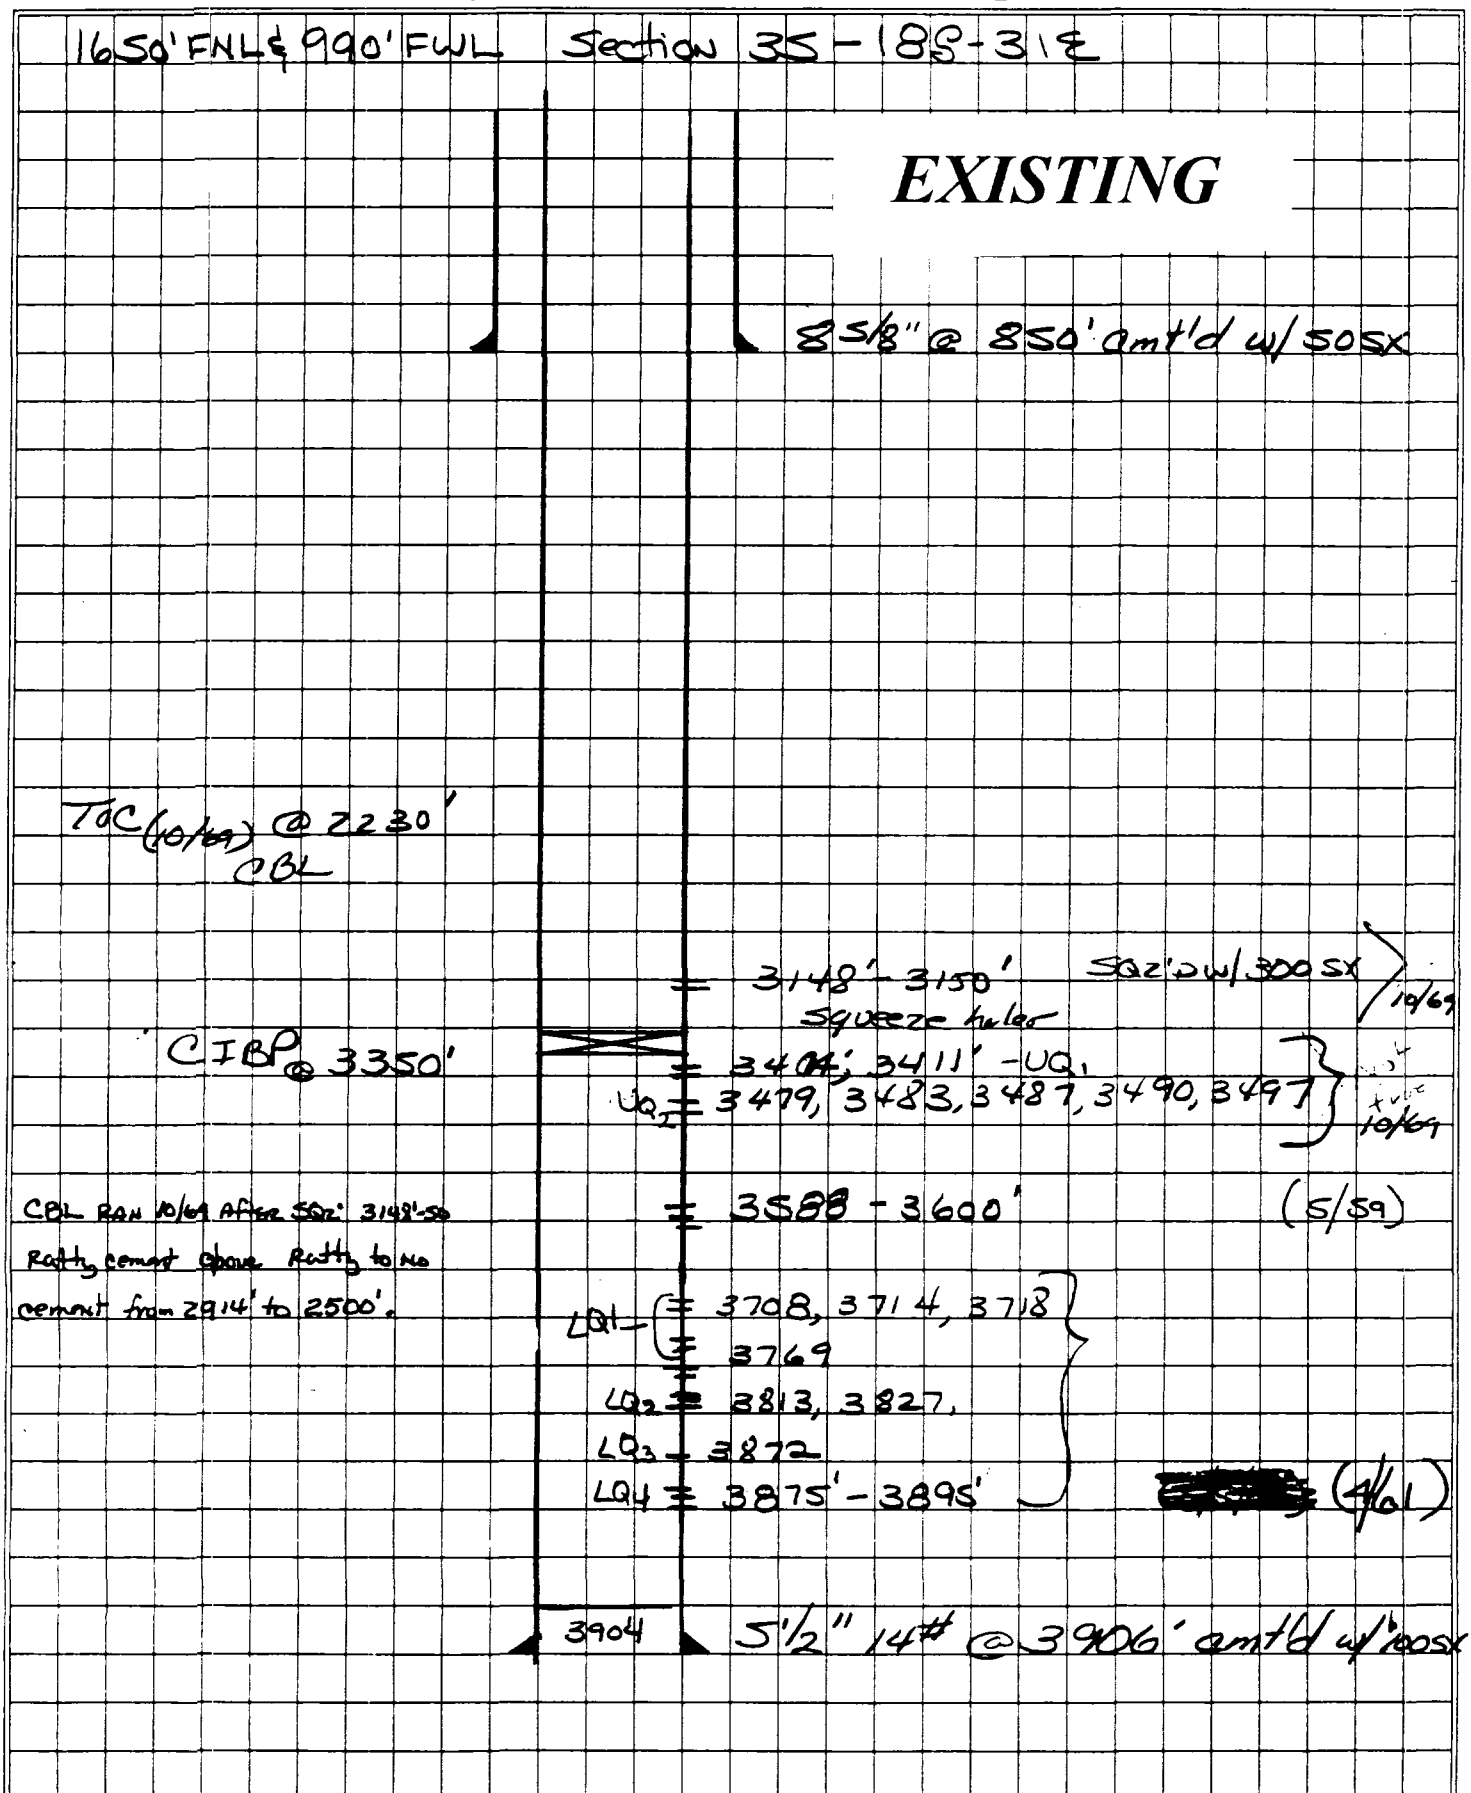 1650' FNL & 990' FWL Section 35-18S-31E
EXISTING
8 5/8" @ 850' cmt'd w/ 50 SX
TOC (10/69) @ 2230'
CBL
3148'-3150' SQZ'D w/ 300 SX
10/69
squeeze holes
CIBP @ 3350'
3404', 3411' - UQ1
UQ2 3479, 3483, 3487, 3490, 3497
10/69
CBL RAN 10/69 AFTER SQZ' 3148'-50
3588 - 3600' (5/59)
Ratty cement above Ratty to NO
cement from 2914' to 2500'.
LQ1 3708, 3714, 3718
3769
LQ2 3813, 3827,
LQ3 3872
LQ4 3875' - 3895' (4/61)
3904 5 1/2" 14# @ 3906' cmt'd w/ 100 SX